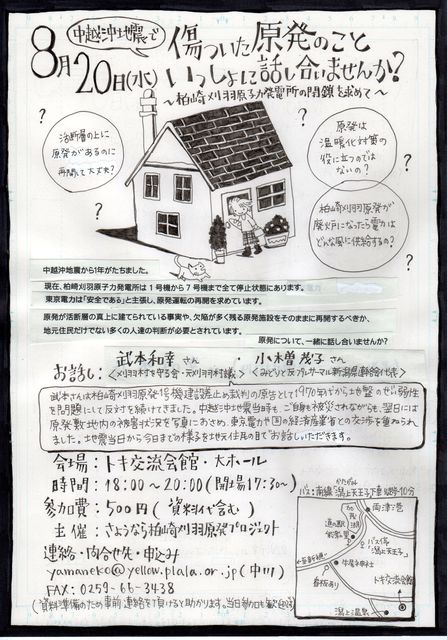 中越沖地震で
傷ついた原発のこと
8月20日(水)いっしょに話し合いませんか?
～柏崎刈羽原子力発電所の閉鎖を求めて～
活断層の上に
原発があるのに
再開して大丈夫?
原発は
温暖化対策の
役に立つのでは
ないの?
柏崎刈羽原発が
廃炉になったら電力は
どんな風に供給するの?
?
?
?
?
?
中越沖地震から1年がたちました。
現在、柏崎刈羽原子力発電所は1号機から7号機まで全て停止状態にあります。
東京電力は「安全である」と主張し、原発運転の再開を求めています。
原発が活断層の真上に建てられている事実や、欠陥が多く残る原発施設をそのままに再開するべきか、
地元住民だけでない多くの人達の判断が必要とされています。
原発について、一緒に話し合いませんか?
お話し:武本和幸さん・小木曽茂子さん
<刈羽村を守る会・元刈羽村村議> <みどりと反プルサーマル新潟県連絡会代表>
武本さんは柏崎刈羽原発1号機建設差止め裁判の原告として1970年代から地盤のぜい弱性
を問題にして反対を続けてきました。中越沖地震当時も、ご自身も被災されながらも、翌日には
原発敷地内の被害状況を写真におさめ、東京電力や国の経済産業省との交渉を重ねられ
ました。地震当日から今日までの様子を地元住民の目でお話しいただきます。
会場:トキ交流会館・大ホール
時間:18:00～20:00(開場17:30～)
参加費:500円(資料代含む)
主催:さようなら柏崎刈羽原発プロジェクト
連絡・問合せ先・申込み
yamaneko@yellow.plala.or.jp(中川)
FAX:0259-66-3438
(資料準備のため事前連絡を頂けると助かります。当日参加も歓迎
バス:南線 潟上天王下車 徒歩10分
かたがみ
両津港
加茂湖
バス停
潟上天王
牛尾神社
看板あり
トキ交流会館
潟上温泉